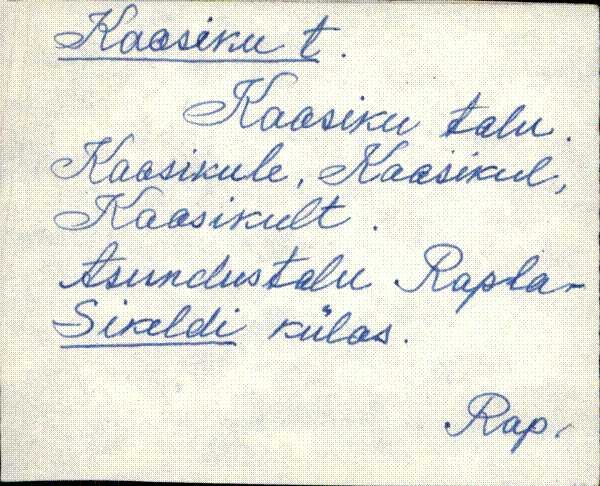 Kaasiku t.
Kaasiku talu.
Kaasikule, Kaasikul,
Kaasikult.
Asundustalu Rapla-
Sikeldi külas.
Rap.